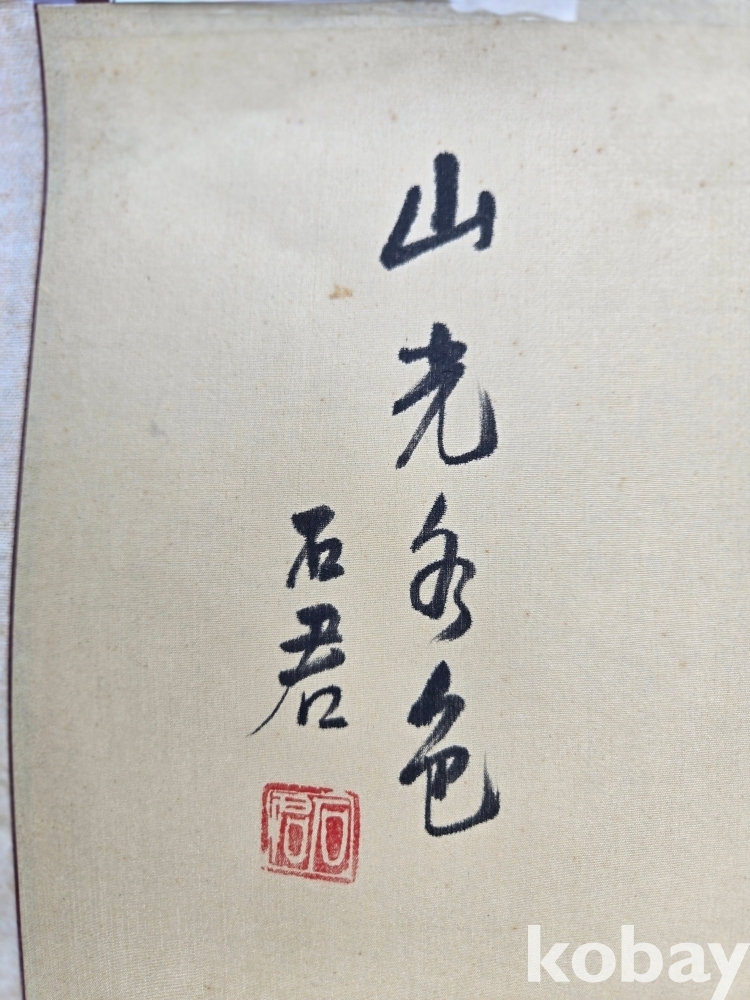 山光水色
石君
石君
kobay